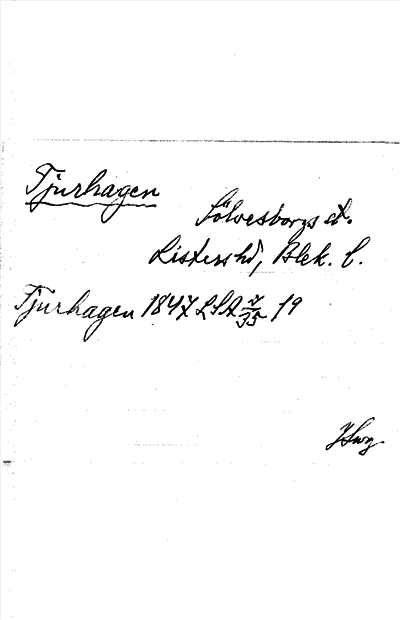 Tjurhagen
Sölvesborgs st.
Listers hd, Blek. l.
Tjurhagen 1847 LSA 35 19